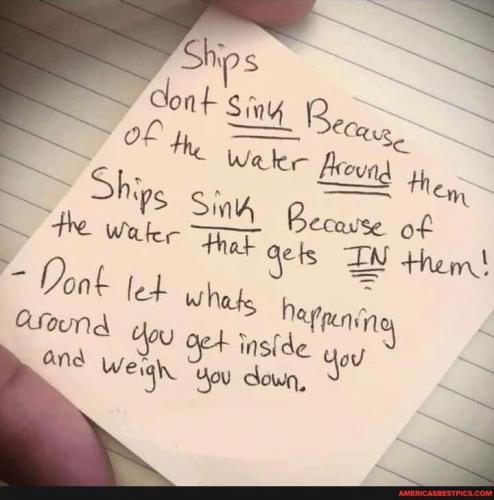 Ships
dont Sink Because
of the water Around them
Ships Sink Because of
the water that gets IN them!
- Dont let whats happening
around you get inside you
and weigh you down.
AMERICASBESTPICS.COM